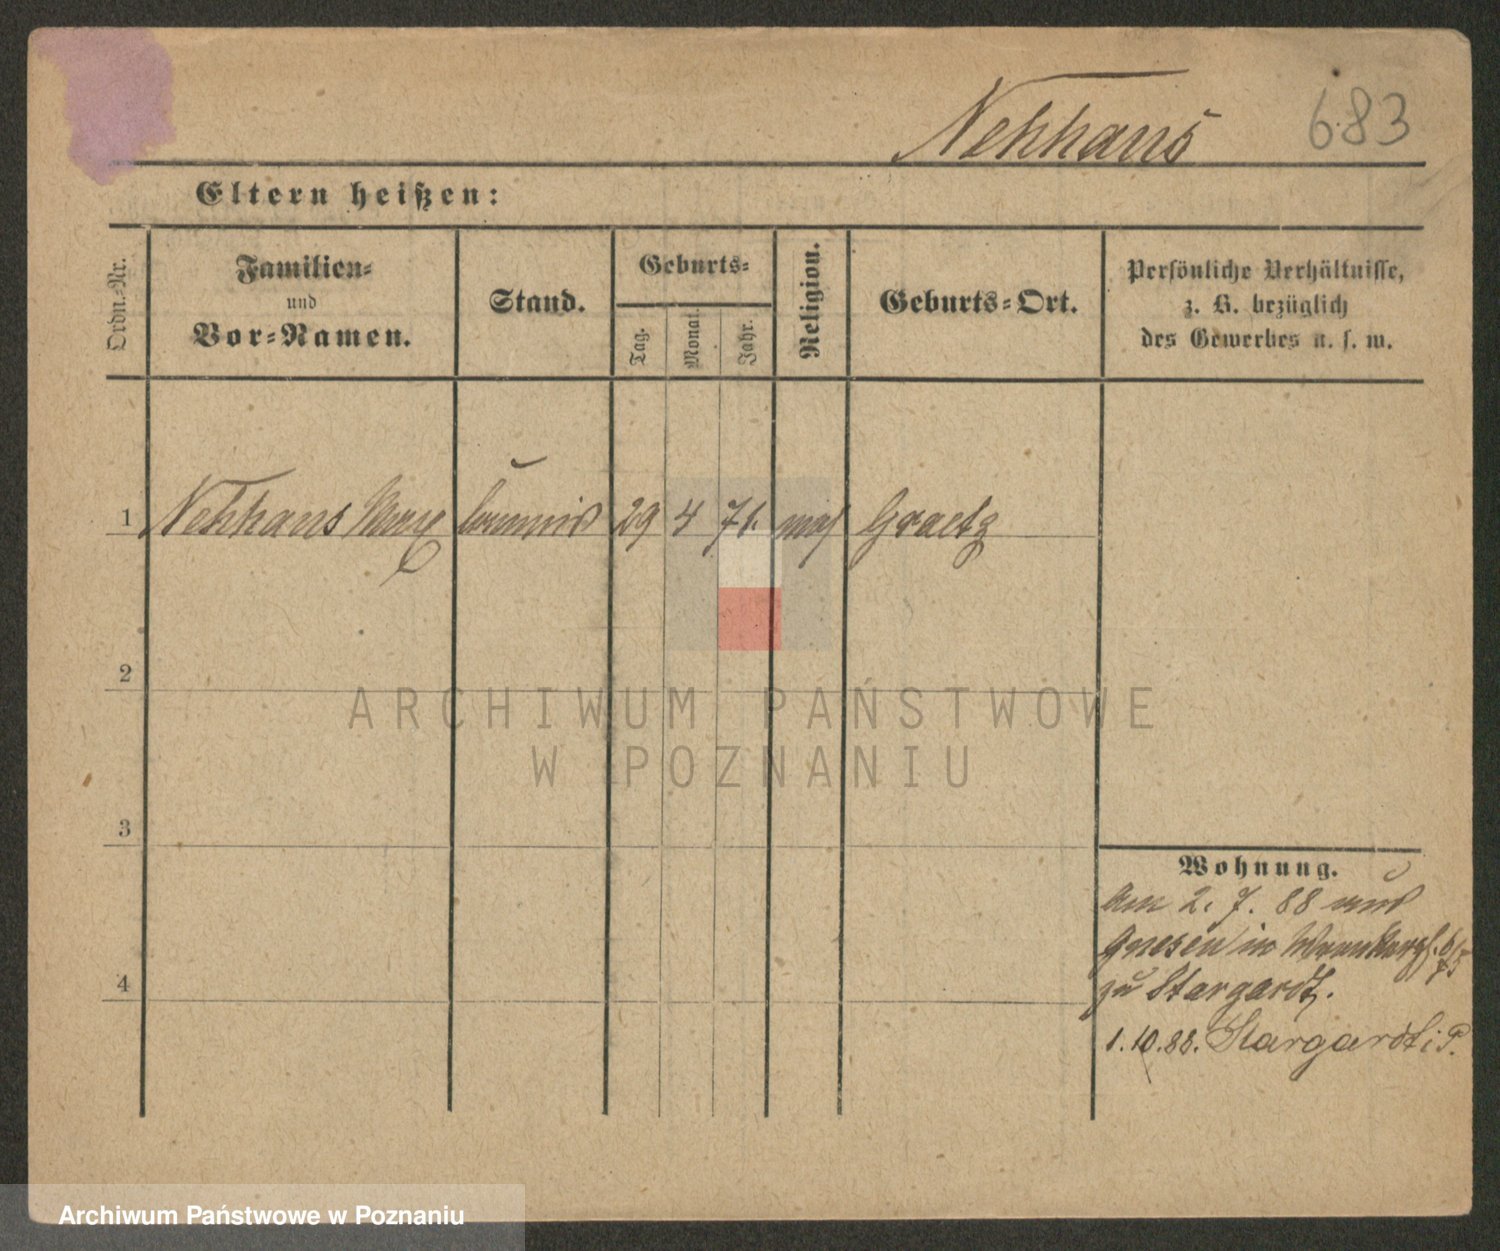 Nehhaus 683
Eltern heißen:
Ordn.-Nr.
Familien-
und
Vor-Namen.
Stand.
Geburts-
Tag.
Monat.
Jahr.
Religion.
Geburts-Ort.
Persönliche Verhältnisse,
z. B. bezüglich
des Gewerbes u. s. w.
1 Nehhaus Max Commis 29 4 71. mos Graetz
2
3
4
Wohnung.
Am 2. 7. 88 aus
Gnesen in
zu Stargardt.
1.10.88. Stargardt i P.
ARCHIWUM PAŃSTWOWE
W POZNANIU
Archiwum Państwowe w Poznaniu